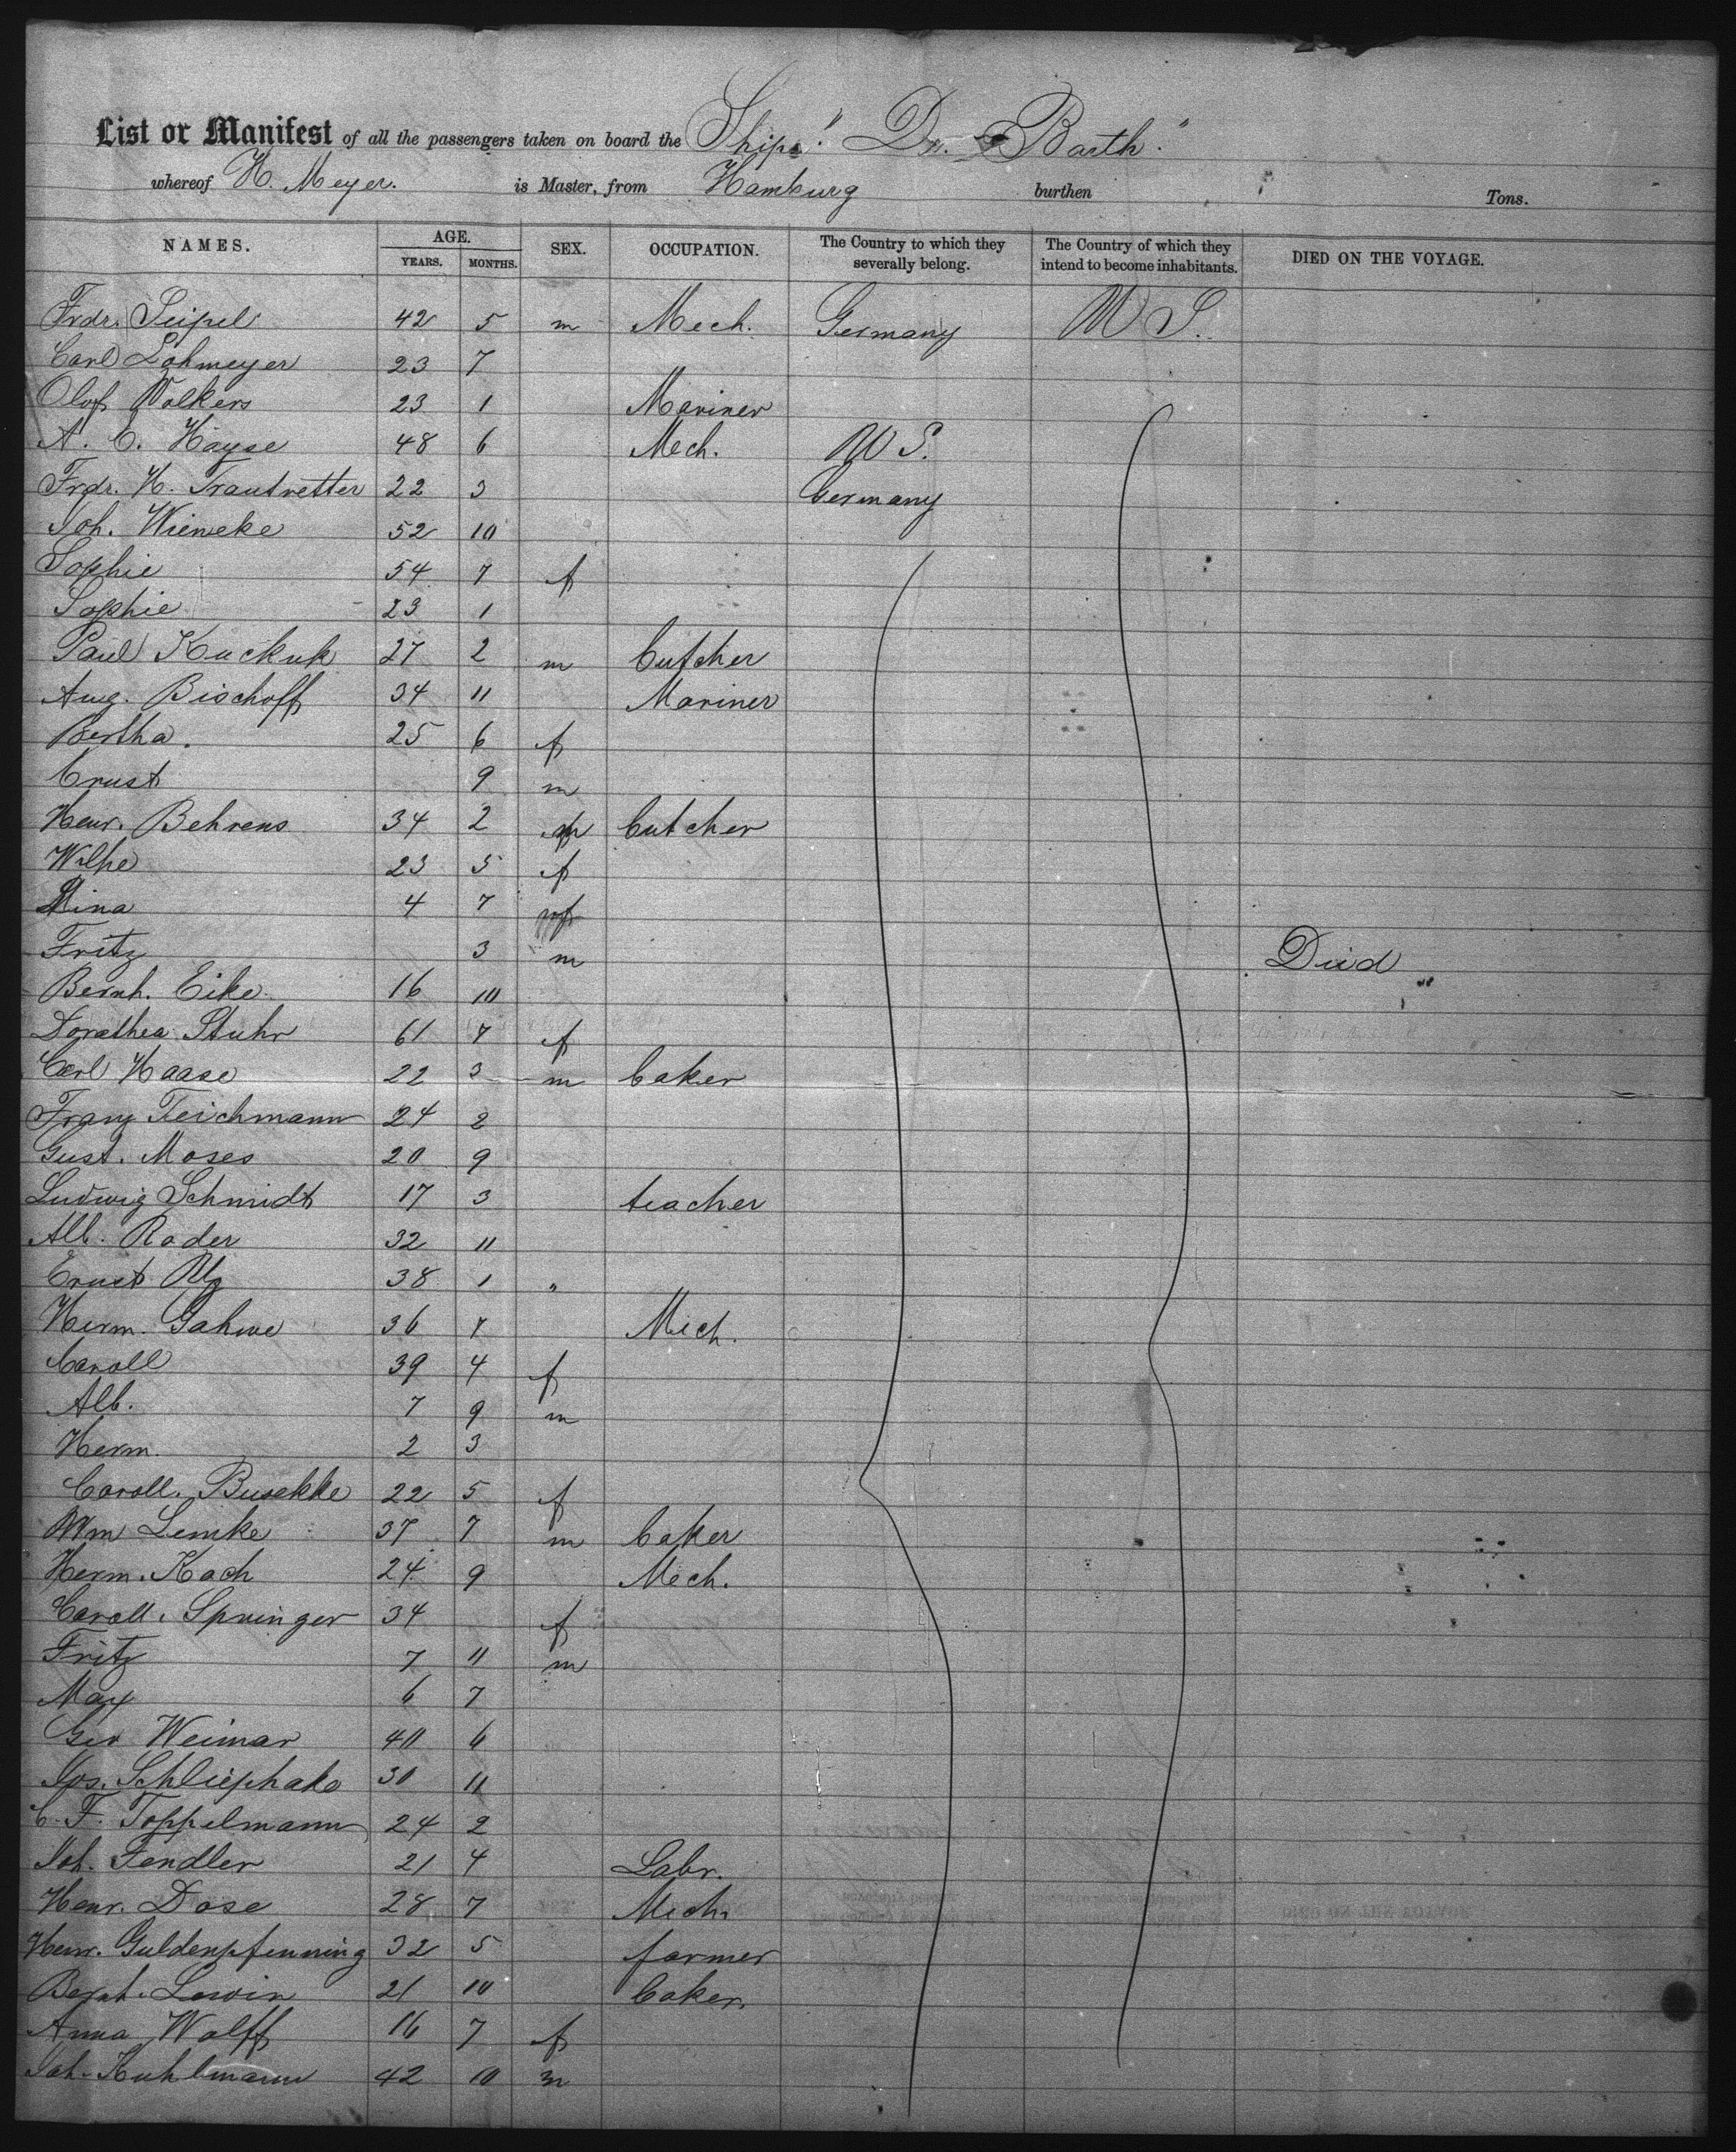 List or Manifest of all the passengers taken on board the Ship "Dr. Barth"
whereof H. Meyer. is Master, from Hamburg burthen Tons.
NAMES. AGE. YEARS. MONTHS. SEX. OCCUPATION. The Country to which they severally belong. The Country of which they intend to become inhabitants. DIED ON THE VOYAGE.
Frdr. Seipel 42 5 m Mech. Germany U S.
Carl Lohmeyer 23 7
Olof Volkers 23 1 Mariner
A. C. Hayse 48 6 Mech. U S.
Frdr. H. Trautvetter 22 3 Germany
Joh. Wieneke 52 10
Sophie 54 7 f
Sophie 23 1
Paul Kuckuk 27 2 m butcher
Aug. Bischoff 34 11 Mariner
Bertha. 25 6 f
Ernst 9 m
Henr. Behrens 34 2 m butcher
Wilhe 23 5 f
Mina 4 7 f
Fritz 3 m Died
Bernh. Eike 16 10
Dorathea Stuhr 61 7 f
Carl Haase 22 3 m baker
Franz Teichmann 24 2
Gust. Moses 20 9
Ludwig Schmidt 17 3 teacher
Alb. Rader 32 11
Ernst 38 1 "
Herm. Gahwe 36 7 Mech.
Caroll 39 4 f
Alb. 7 9 m
Herm. 2 3
Caroll. Busekke 22 5 f
Wm Lemke 37 7 m baker
Herm. Koch 24 9 Mech.
Caroll. Springer 34 f
Fritz 7 11 m
Max 6 7
Geo Weimar 40 6
Jos. Schliephake 30 11
C. F. Toppelmann 24 2
Joh. Fendler 21 4 Labr.
Henr. Dose 28 7 Mech.
Henr. Guldenpfenning 32 5 farmer
Bernh. Lewin 21 10 baker.
Anna Wolff 16 7 f
Joh. Kuhlmann 42 10 m